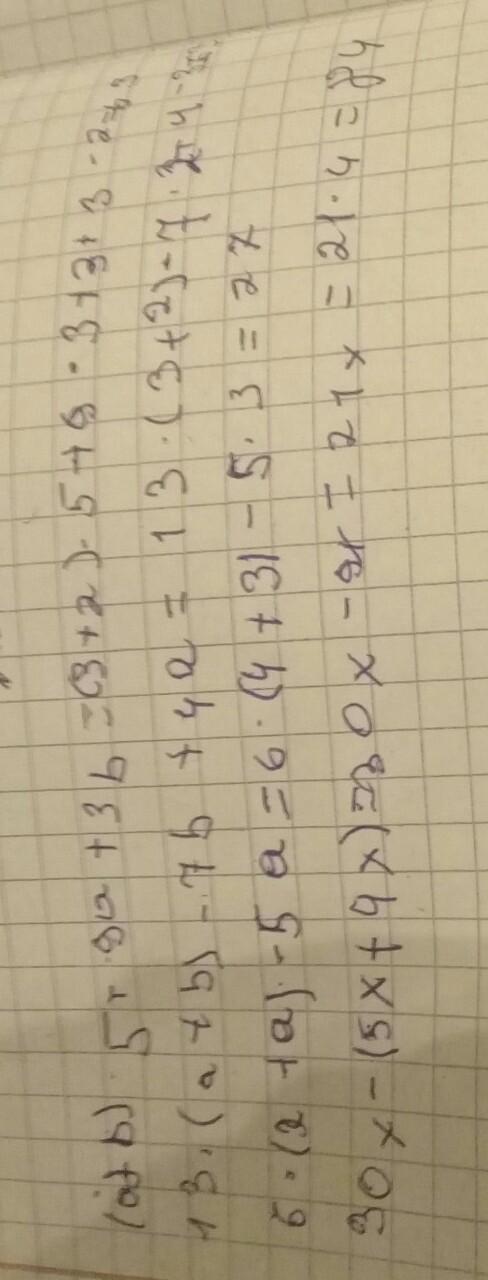 (a+b)·5+9a+3b=(3+2)·5+9·3+3·2=
13·(a+b)-7b+4a=13·(3+2)-7·2+4·3
6·(2+a)-5a=6·(4+3)-5·3=27
30x-(5x+4x)=30x-9x=21x=21·4=84